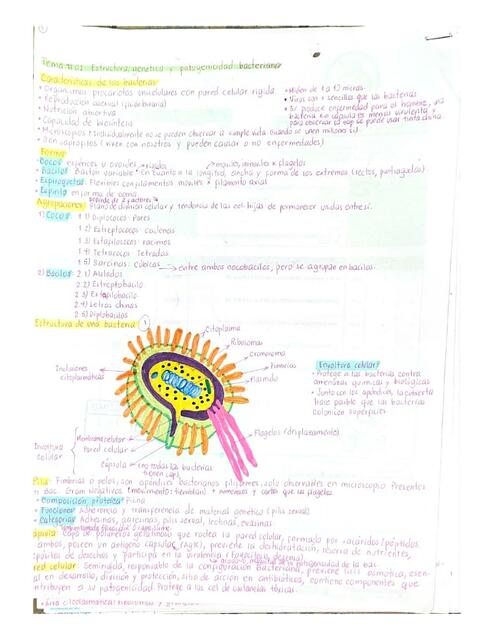 Tema #01 Estructura, genética y patogenicidad bacteriana
Características de las bacterias
• Organismos procariotas unicelulares con pared celular rígida
• Miden de 1 a 10 micras
• Reproducción asexual
• Virus son + sencillos que las bacterias
• Nutrición
• Capacidad de
• Si produce enfermedad para el hombre, una bacteria sin cápsula es menos virulenta y para observar el cap se puede usar tinta china.
• Microscópicos: Individualmente no se pueden observar a simple vista. Cuando se unen millones si.
• Son saprofitos (viven con nosotros y pueden causar o no enfermedades)
Formas
• Cocos: esféricos u ovoides • rígidos
móviles, inmóviles x flagelos
• Bacilos: Bastón variable • En cuanto a la longitud, ancho y forma de los extremos (rectos, puntiagudos)
• Espiroquetas: Flexibles con filamentos móviles x filamento axial
• Espirilo en forma de coma
depende de 2 factores
Agrupaciones: Plano de división celular y tendencia de las cél. hijas de permanecer unidas entre sí.
1) Cocos: 1.1) Diplococos: Pares
1.2) Estreptococos: Cadenas
1.3) Estafilococos: racimos
1.4) Tetracocos: Tétradas
1.5) Sarcinas: Cúbicas
entre ambos cocobacilos, pero se agrupan en bacilos
2) Bacilos: 2.1) Aislados
2.2) Estreptobacilo
2.3) Estafilobacilo
2.4) Letras chinas
2.5) Diplobacilos
Estructura de una bacteria
Citoplasma
Ribosomas
Cromosoma
Fimbrias
Plásmido
Inclusiones citoplasmáticas
Envoltura celular:
• Protege a las bacterias contra amenazas químicas y biológicas
• Junto con los apéndices, la cubierta hace posible que las bacterias colonicen superficies
Flagelos (desplazamiento)
Envoltura celular
Membrana celular
Pared celular
Cápsula (no todas las bacterias tienen cap)
Pilis: Fimbrias o pelos, son apéndices bacterianos filiformes, solo observables en microscopio. Presentes
en Bac. Gram Negativas + numerosos y cortos que los flagelos
• Composición proteica: Pilina
• Funciones: Adherencia y transferencia de material genético (pilis sexual)
• Categorías: Adhesinas, pilis sexual, lectinas, evasinas
Capa de polímeros gelatinoso que rodea la pared celular, formada por sacáridos/péptidos
ambos, poseen un antígeno capsular previene la deshidratación, reserva de nutrientes,
depósitos de desechos y participa en la virulencia
red celular: Semirígida, responsable de la configuración bacteriana, previene lisis osmótica, esen-
al en desarrollo, división y protección, sitio de acción en antibióticos, contiene componentes que
contribuyen a su patogenicidad. Protege a las cél de sustancias tóxicas.